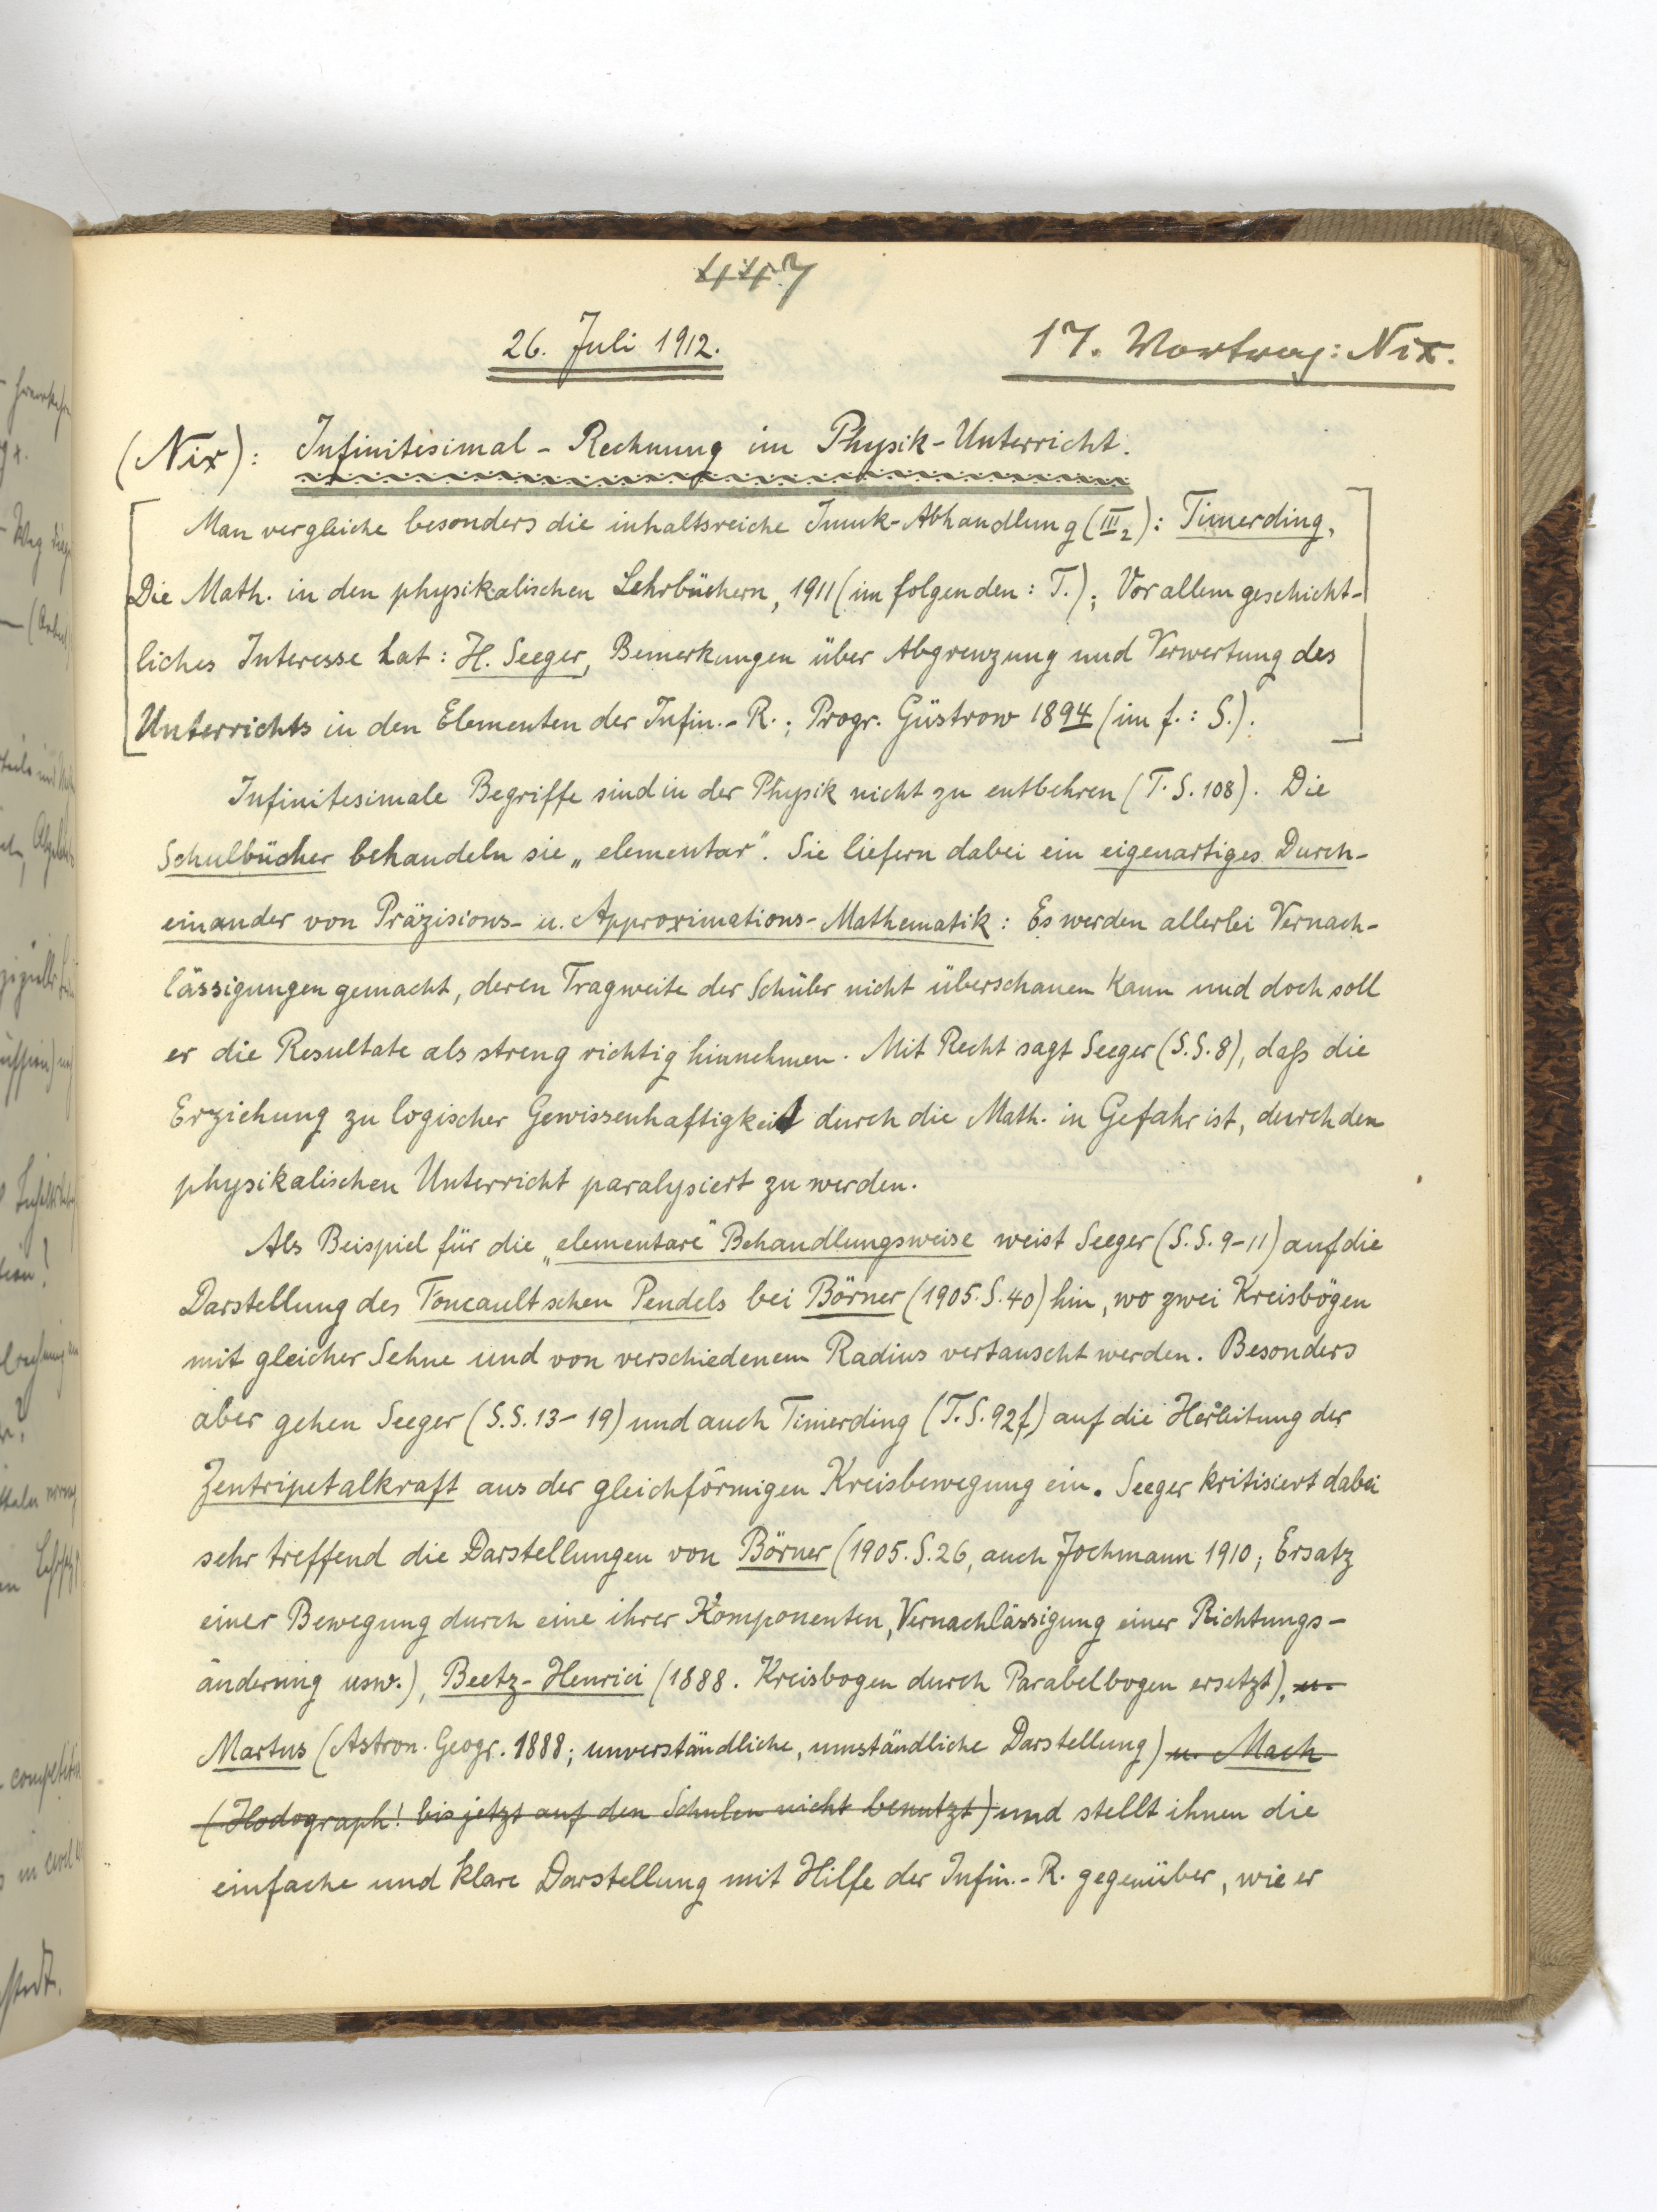 447
26. Juli 1912.
17. Vortrag: Nix.
(Nix): Infinitesimal-Rechnung im Physik-Unterricht.
Man vergleiche besonders die inhaltsreiche Imuk-Abhandlung (III2): Timerding,
Die Math. in den physikalischen Lehrbüchern, 1911 (im folgenden: T.); Vor allem geschicht-
liches Interesse hat: H. Seeger, Bemerkungen über Abgrenzung und Verwertung des
Unterrichts in den Elementen der Infin.-R.; Progr. Güstrow 1894 (im f.: S.).
Infinitesimale Begriffe sind in der Physik nicht zu entbehren (T. S. 108). Die
Schulbücher behandeln sie „elementar". Sie liefern dabei ein eigenartiges Durch-
einander von Präzisions- u. Approximations-Mathematik: Es werden allerlei Vernach-
lässigungen gemacht, deren Tragweite der Schüler nicht überschauen kann und doch soll
er die Resultate als streng richtig hinnehmen. Mit Recht sagt Seeger (S. S. 8), daß die
Erziehung zu logischer Gewissenhaftigkeit durch die Math. in Gefahr ist, durch den
physikalischen Unterricht paralysiert zu werden.
Als Beispiel für die „elementare" Behandlungsweise weist Seeger (S. S. 9-11) auf die
Darstellung des Foucaultschen Pendels bei Börner (1905. S. 40) hin, wo zwei Kreisbögen
mit gleicher Sehne und von verschiedenem Radius vertauscht werden. Besonders
aber gehen Seeger (S. S. 13-19) und auch Timerding (T. S. 92f) auf die Herleitung der
Zentripetalkraft aus der gleichförmigen Kreisbewegung ein. Seeger kritisiert dabei
sehr treffend die Darstellungen von Börner (1905. S. 26, auch Jochmann 1910; Ersatz
einer Bewegung durch eine ihrer Komponenten, Vernachlässigung einer Richtungs-
änderung usw.), Beetz-Henrici (1888. Kreisbogen durch Parabelbogen ersetzt), u.
Martus (Astron. Geogr. 1888; unverständliche, umständliche Darstellung) u. Mach
(Hodograph! bis jetzt auf den Schulen nicht benutzt) und stellt ihnen die
einfache und klare Darstellung mit Hilfe der Infin.-R. gegenüber, wie er